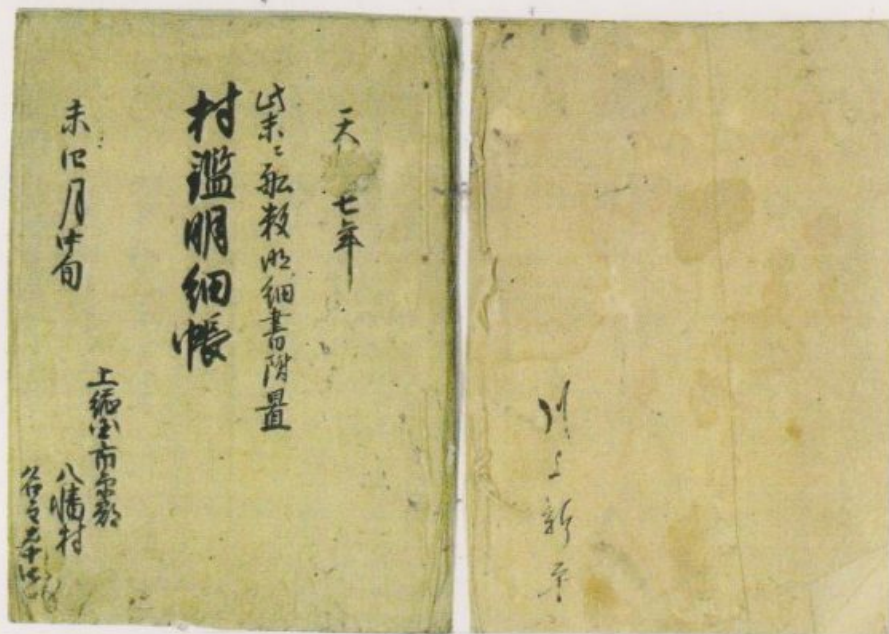 天 七年
此末ニ船数明細書階置
村鑑明細帳
未四月中旬
上総国市原郡
八幡村
川上新